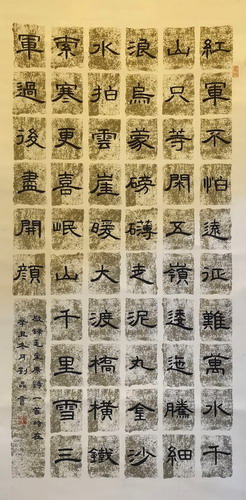 紅軍不怕遠征難萬水千
山只等閑五嶺逶迤騰細
浪烏蒙磅礴走泥丸金沙
水拍雲崖暖大渡橋橫鐵
索寒更喜岷山千里雪三
軍過後盡開顔
敬錄毛主席詩一首時在
辛丑冬月